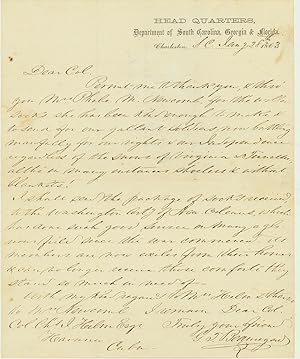 HEAD QUARTERS,
Department of South Carolina, Georgia & Florida.
Charleston S.C. Jany 1863
Dear Col.
Permit me to thank you & thro'
you Mrs Phelia M. Newcomb for the
socks she has been kind enough to make &
to send for our gallant soldiers, now battling
manfully for our rights & our Independence
regardless of the Snows of Virginia & Tennessee
altho' in many instances shoeless & without
blankets!
I shall send the package of socks received
to the Washington Arty of New Orleans, which
has done such good service on many a glo-
rious field since the war commenced its
members are now exiles from their homes
& can no longer receive those comforts they
stand so much in need of.
With my kind regards to Mrs Helm & thanks
to Mrs Newcomb I remain Dear Col.
Col. Chs J. Helm Esqr Truly your friend
Havana G. T. Beauregard
Cuba